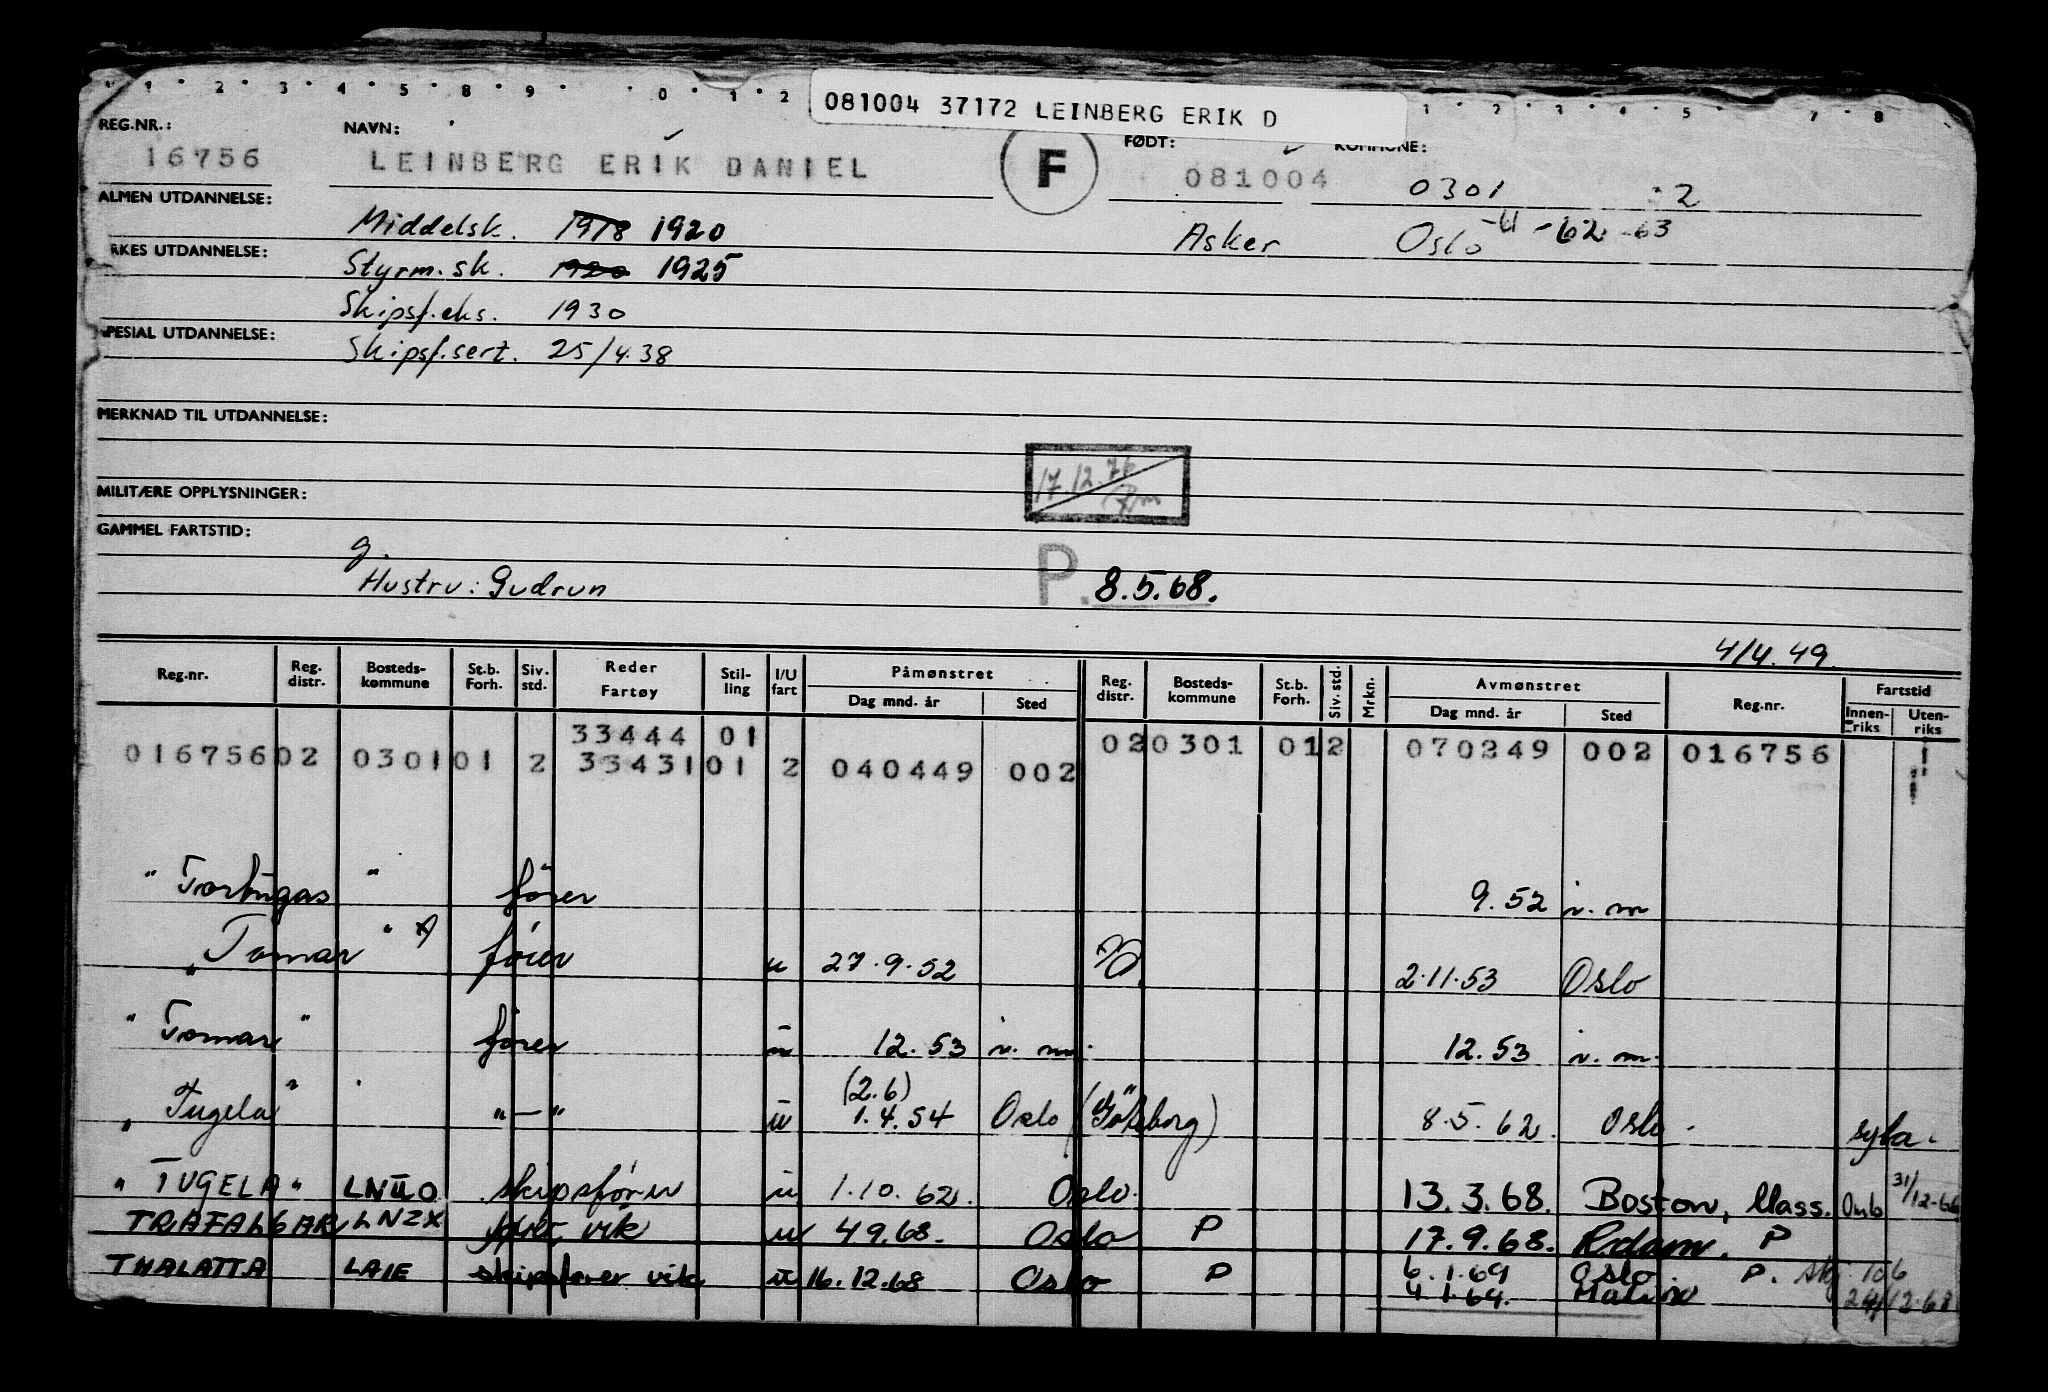 1 2 3 4 5 8 9 0 1 2 1 2 3 4 5 7 8
081004 37172 LEINBERG ERIK D
REG.NR.: NAVN: FØDT: KOMMUNE:
16756 LEINBERG ERIK DANIEL F 081004 0301 2
ALMEN UTDANNELSE: Middelsk. 1918 1920 Asker Oslo -U -62 -63
RKES UTDANNELSE: Styrm.sk. 1920 1925
Skipsf.eks. 1930
PESIAL UTDANNELSE: Skipsf.sert. 25/4.38
MERKNAD TIL UTDANNELSE:
17.12.76
MILITÆRE OPPLYSNINGER:
GAMMEL FARTSTID:
g.
Hustru: Gudrun P. 8.5.68.
4/4.49.
Reg.nr. Reg. distr. Bosteds- kommune St.b. Forh. Siv. std. Reder Fartøy Stil- ling I/U fart Påmønstret Dag mnd. år Sted Reg. distr. Bosteds- kommune St.b. Forh. Siv. std. Mrkn. Avmønstret Dag mnd. år Sted Reg.nr. Fartstid Innen- riks Uten- riks
33444 01 02 0301 01 2 070249 002 016756
016756 02 0301 01 2 33431 01 2 040449 002
" Tortugas " fører 9.52 n.m
" Tomar " fører u 27.9.52 2.11.53 Oslo
" Tomar " fører u 12.53 n.m. 12.53 n.m.
(2.6)
" Tugela " "—" u 1.4.54 Oslo (Göteborg) 8.5.62 Oslo.
" TUGELA " skipsfører u 1.10.62. Oslo. 13.3.68. Boston, Mass. 31/12-66
TRAFALGAR LNZX vik u 4.9.68. Oslo P 17.9.68. Rdam. P
THALATTA LAIE skipsfører vik u 16.12.68 Oslo P 6.1.69 Oslo P.
4.1.64.